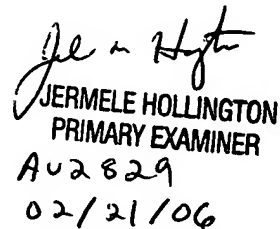 JERMELE HOLLINGTON
PRIMARY EXAMINER
AU2829
02/21/06